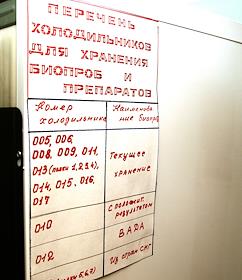 ПЕРЕЧЕНЬ
ХОЛОДИЛЬНИКОВ
ДЛЯ ХРАНЕНИЯ
БИОПРОБ И
ПРЕПАРАТОВ
Номер холодильника
Наименование биопроб
005, 006,
008, 009, 011,
013 (полки 1,2,3,4),
014, 015, 016,
017
Текущее
хранение
010
С положит.
результатом
012
ВАДА
Из стран СНГ